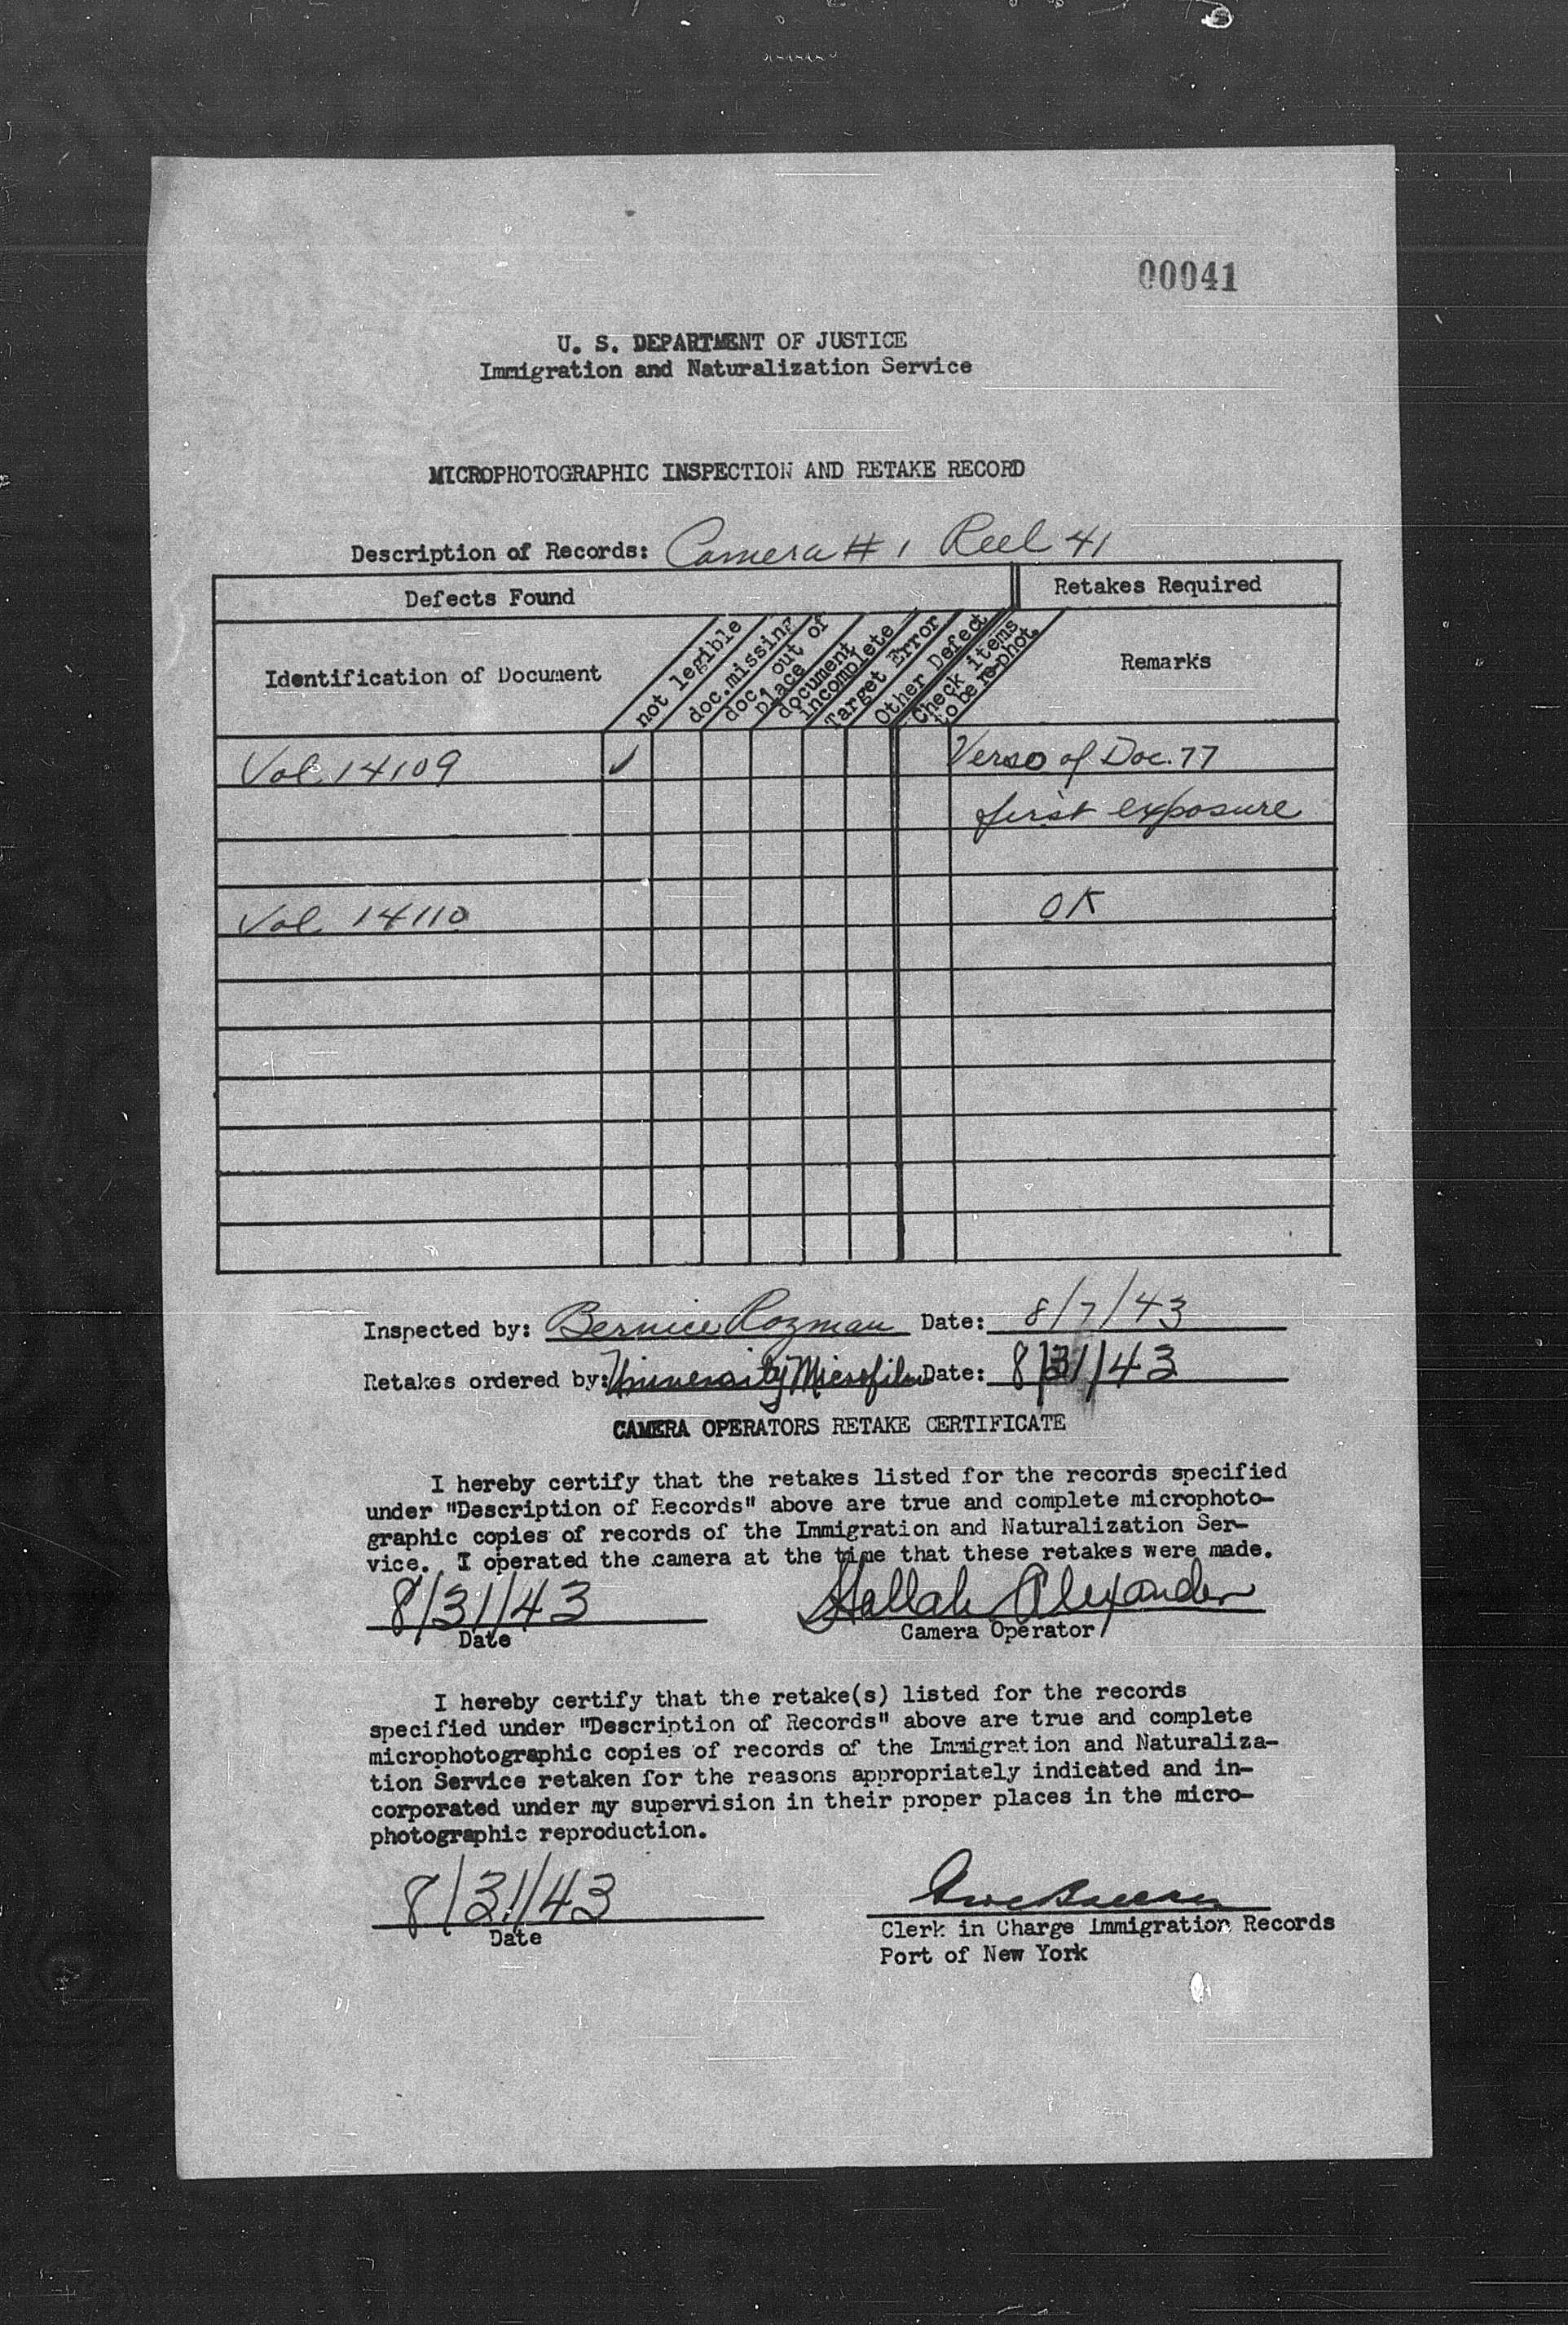 00041
U. S. DEPARTMENT OF JUSTICE
Immigration and Naturalization Service
MICROPHOTOGRAPHIC INSPECTION AND RETAKE RECORD
Description of Records: Camera # 1 Reel 41
Defects Found
Retakes Required
Identification of Document
not legible
doc.missing
doc. out of
place
document
incomplete
Target Error
Other Defect
Check items
to be re-phot
Remarks
Vol. 14109 ✓ Verso of Doc. 77
first exposure
Vol 14110 OK
Inspected by: Bernice Rozman Date: 8/7/43
Retakes ordered by: University Microfilm Date: 8/31/43
CAMERA OPERATORS RETAKE CERTIFICATE
I hereby certify that the retakes listed for the records specified
under "Description of Records" above are true and complete microphoto-
graphic copies of records of the Immigration and Naturalization Ser-
vice. I operated the camera at the time that these retakes were made.
8/31/43 Alexander
Date Camera Operator
I hereby certify that the retake(s) listed for the records
specified under "Description of Records" above are true and complete
microphotographic copies of records of the Immigration and Naturaliza-
tion Service retaken for the reasons appropriately indicated and in-
corporated under my supervision in their proper places in the micro-
photographic reproduction.
8/31/43
Date
Clerk in Charge Immigration Records
Port of New York